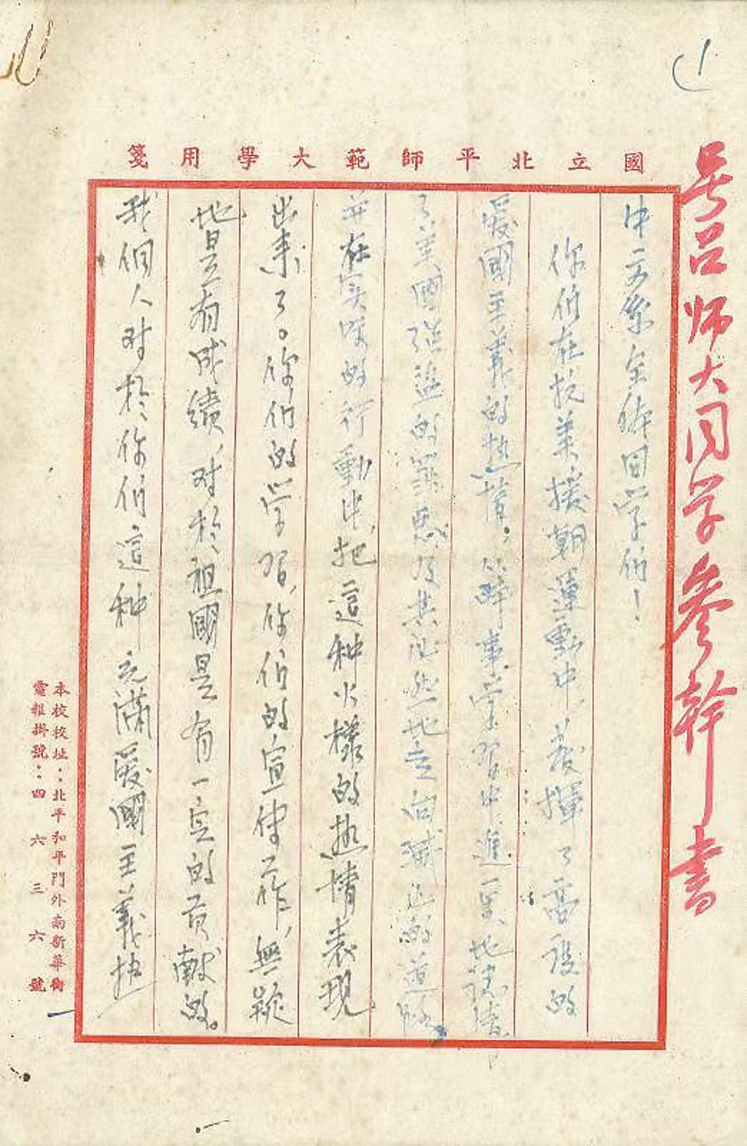 1
國立北平師範大學用箋
号召师大同学參幹書
中文系全体同学们！
你们在抗美援朝運動中，發揮了高度的
愛國主義的热情，以時事学習中進一步地認清
了美國强盗的罪惡及其必然地走向滅亡的道路，
并在实际的行動中，把這种火樣的热情表現
出來了。你们的学習，你们的宣传工作，無疑
地是有成績，对於祖國是有一定的貢献的。
我個人对於你们這种充滿愛國主義热
本校校址：北平和平門外南新華街
電報掛號：四六三六號